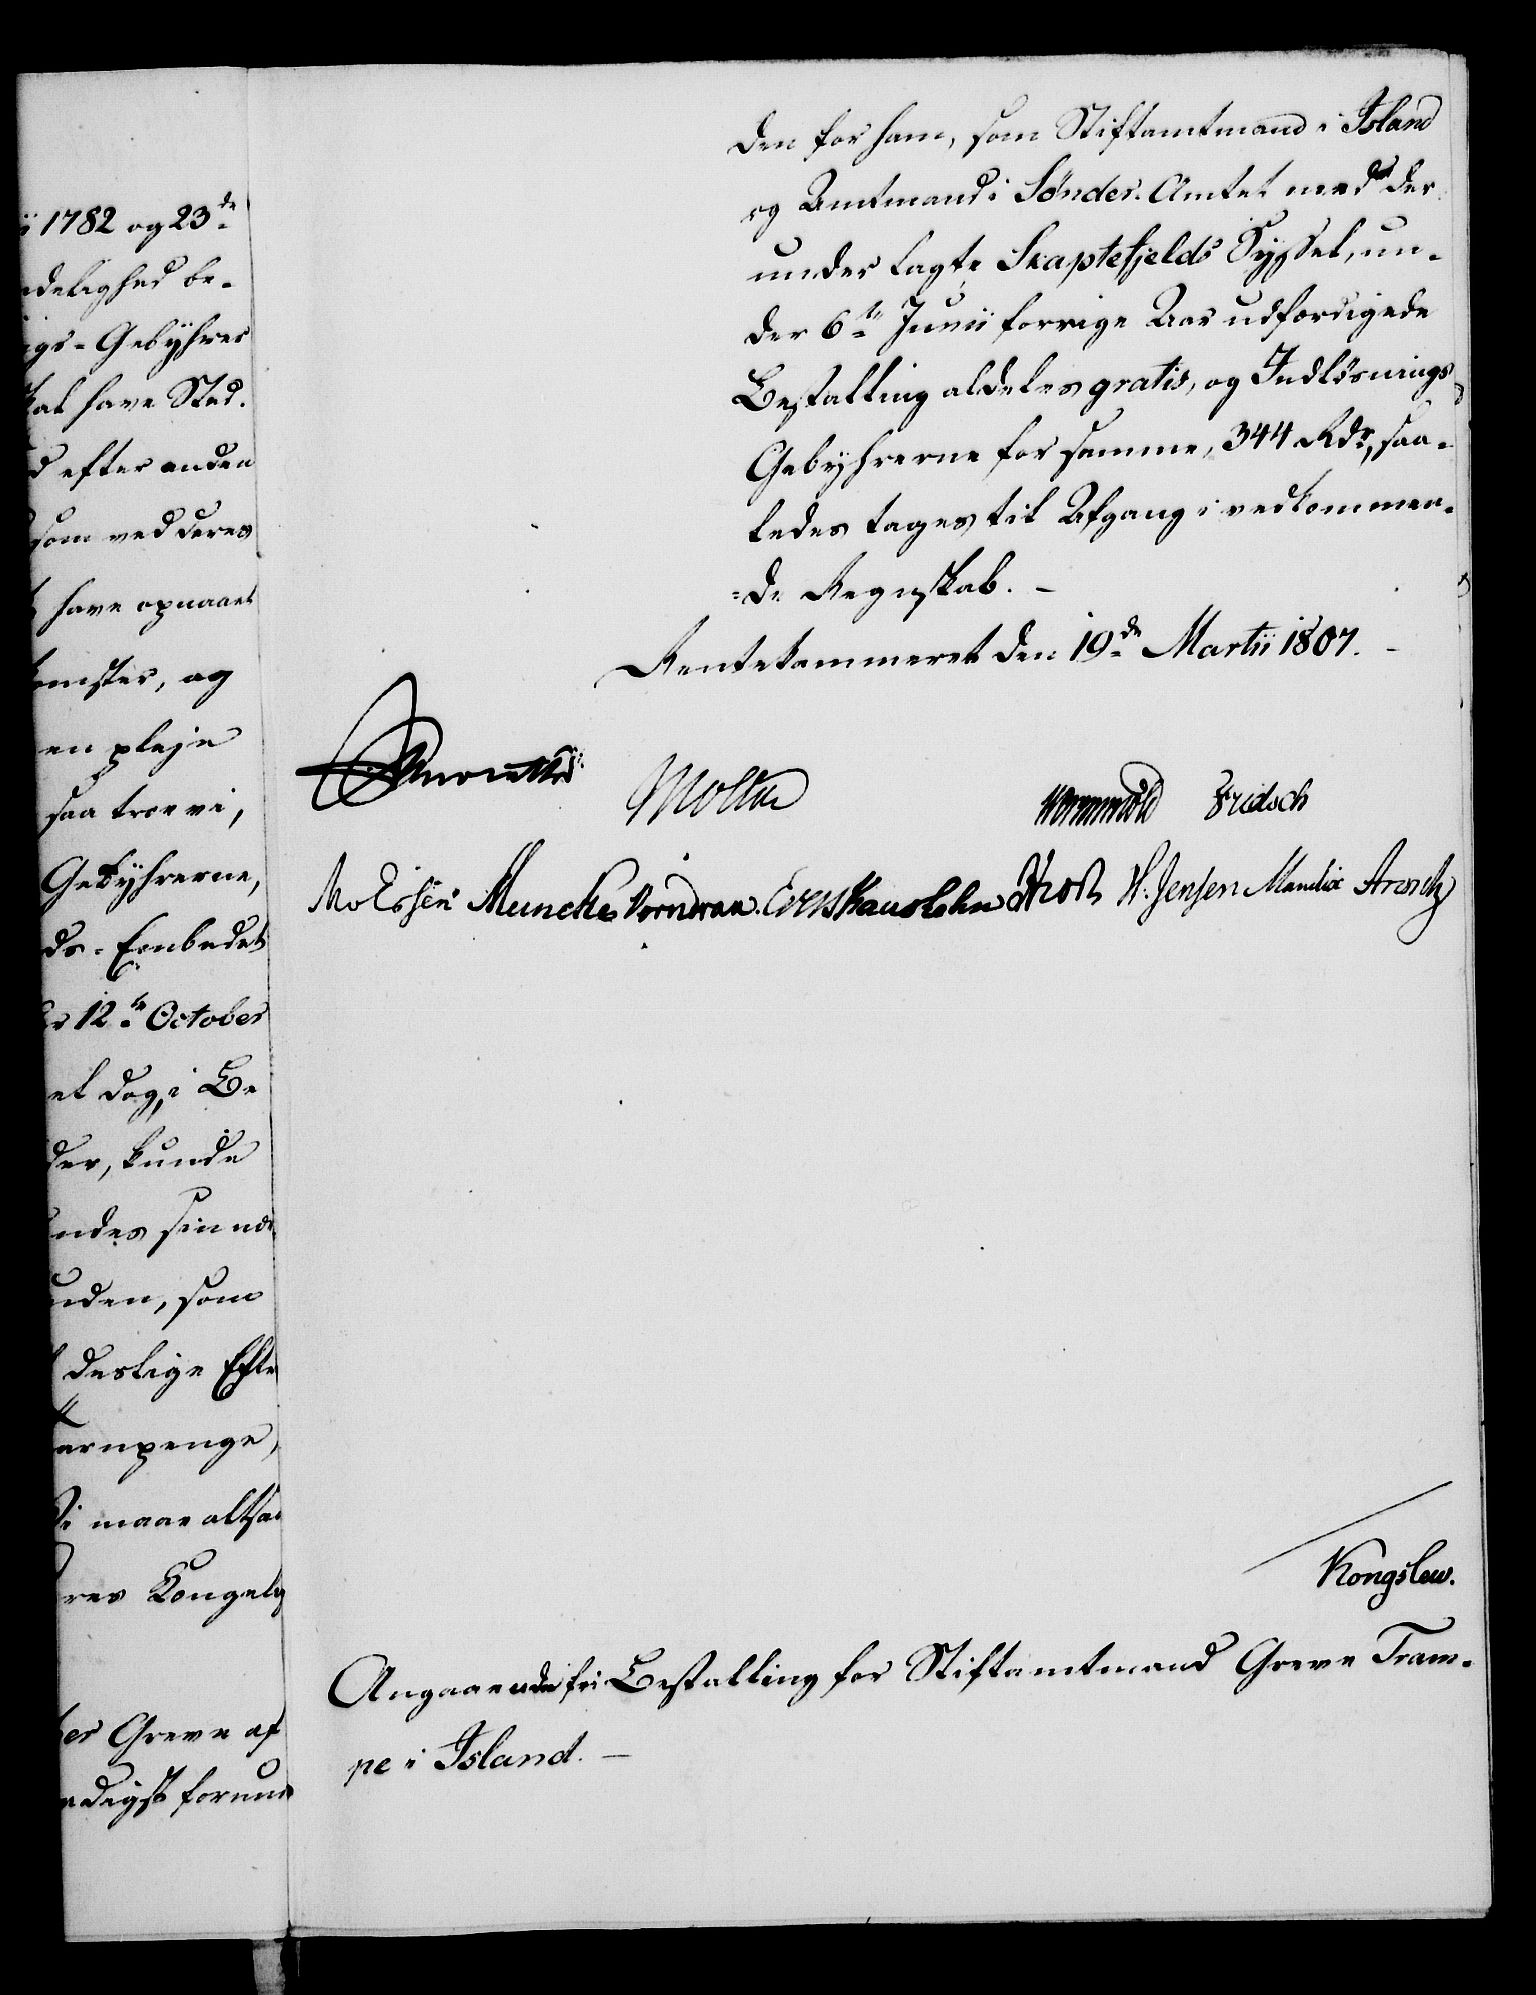 ii 1782 og 23de
delighed be-
gs-Gebyhrer
kal have Sted.
d efter anden
som ved deres
have opnaaet
omster, og
en pleje
saa troe vi,
Gebyhrerne,
ds-Embedet
12te October
et dog, i Be
der, kunde
ndes sin
nden, som
deslige Efte
arnpenge,
Vi maae altsaa
res Kongelig
Greve af
digst forund
den for ham, som Stiftamtmand i Island
og Amtmand i Sønder-Amtet med der
under lagte Skaptefjelds Syssel, un-
der 6te Junii forrige Aar udfærdigede
Bestalling aldeles gratis, og Indløsnings
Gebyhrerne for samme, 344 Rdr, saa-
ledes tages til Afgang i vedkommen-
=de Regnskab. -
Rentekammeret den 19de Martii 1807. -
Moltke Wormskiold Fridsch
Muncke Vorndran. Knoph H. Jensen Mandix Arentz
Kongslew.
Angaaende fri Bestalling for Stiftamtmand Greve Tram-
pe i Island. -